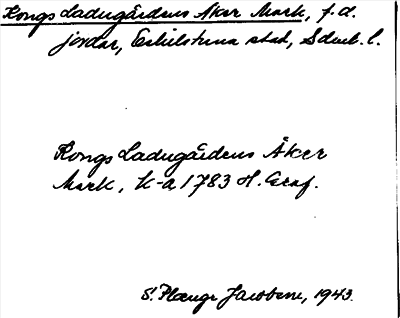 Kongs Ladugårdens Åker Mark, f.d.
jordar, Eskilstuna stad, Södml. l.
Kongs Ladugårdens Åker
Mark, K-a 1783 H. Graf.
S. Plænge Jacobson, 1943.